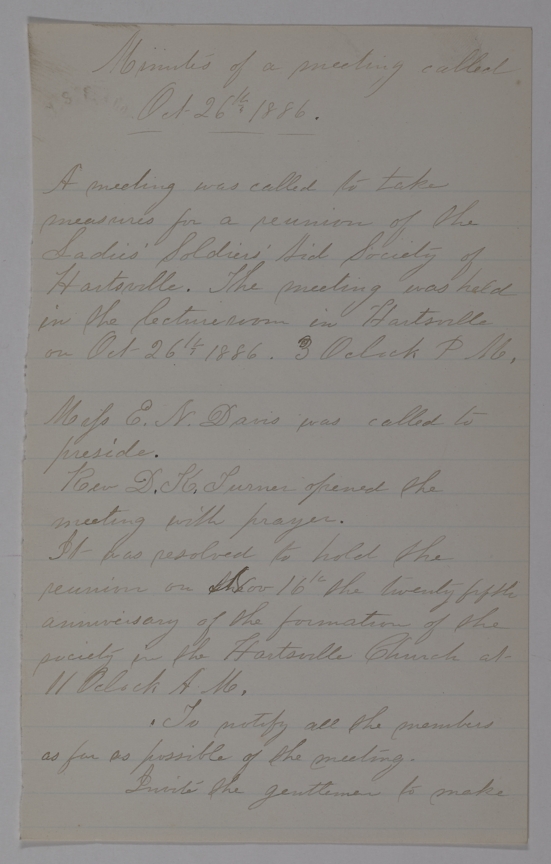 Minutes of a meeting called
Oct 26th 1886.
A meeting was called to take
measures for a reunion of the
Ladies' Soldiers' Aid Society of
Hartsville. The meeting was held
in the lectureroom in Hartsville
on Oct 26th 1886. 3 Oclock P M.
Miss E. N. Davis was called to
preside.
Rev D. K. Turner opened the
meeting with prayer.
It was resolved to hold the
reunion on Nov 16th the twenty fifth
anniversary of the formation of the
society in the Hartsville Church at
11 Oclock A M.
To notify all the members
as far as possible of the meeting.
Invite the gentlemen to make